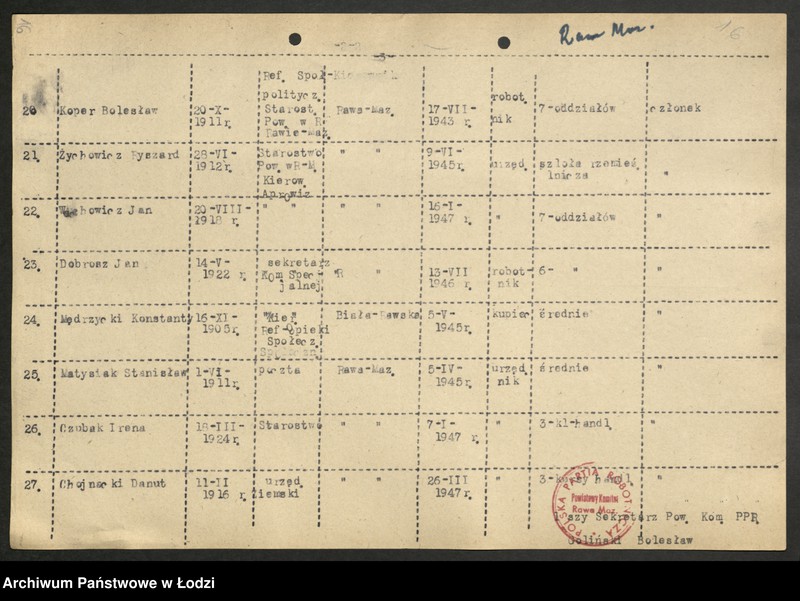 Rawa Maz.
16
-3-
20 Koper Bolesław 20-X-1911r. Ref. Społ-Kierownik politycz. Starost. Pow w R Rawie-Maz. Rawa-Maz. 17-VII-1943 r. robotnik 7-oddziałów członek
21. Żychowicz Ryszard 28-VI-1912r. Starostwo Pow wR-M. Kierow Aprowiz " " 9-VI-1945r. urzęd. szkoła rzemieślnicza "
22. Jan 20-VIII-1918 r. " " " " 16-I-1947 r. " 7-oddziałów "
23. Dobrosz Jan 14-V-1922 r. sekretarz Kom Specjalnej "R " 13-VII 1946 r. robotnik 6- " "
24. Mędrzycki Konstanty 16-XI-1905r. "Kier" Ref-Opieki Społecz. Biała-Rawska 5-V-1945r. kupiec średnie "
25. Matysiak Stanisław 1-VI-1911r. poczta Rawa-Maz. 5-IV-1945r. urzędnik średnie "
26. Czubak Irena 18-III-1924r. Starostwo " " 7-I-1947 r. " 3-kl-handl. "
27. Chojnacki Danut 11-II 1916 r. urzęd. Ziemski " " 26-III 1947r. " 3-klasy handl "
POLSKA PARTIA ROBOTNICZA
Powiatowy Komitet
Rawa Maz.
I-szy Sekretarz Pow. Kom PPR
Goliński Bolesław
Archiwum Państwowe w Łodzi